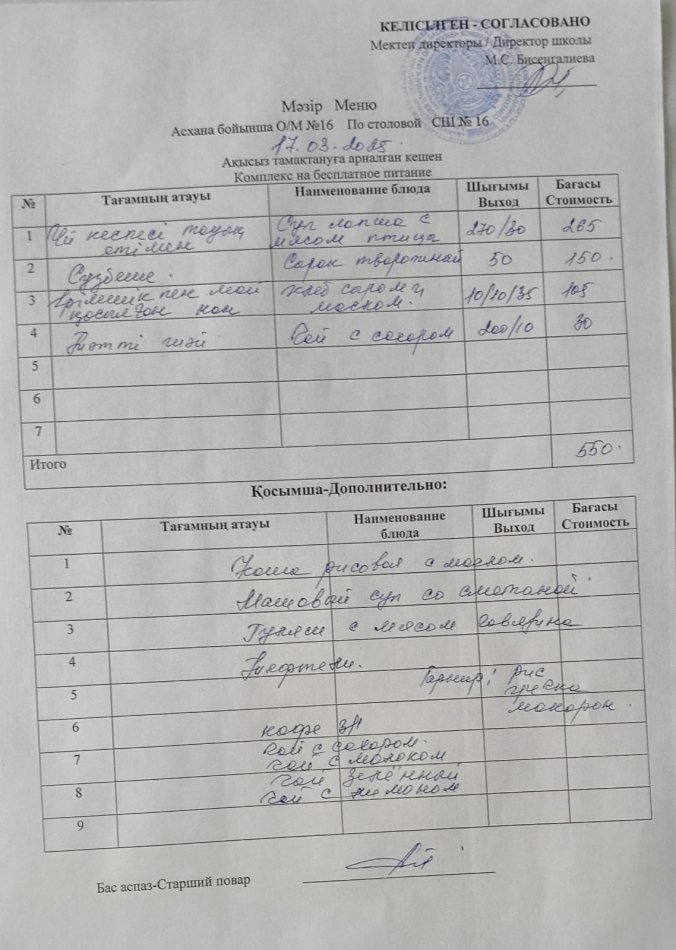 КЕЛІСІЛГЕН - СОГЛАСОВАНО
Мектеп директоры / Директор школы
М.С. Бисенгалиева
Мәзір Меню
Асхана бойынша О/М №16 По столовой СШ № 16
17.03.2025.
Ақысыз тамақтануға арналған кешен
Комплекс на бесплатное питание
№ Тағамның атауы Наименование блюда Шығымы Выход Бағасы Стоимость
1 Үй кеспесі тауық етімен Суп лапша с мясом птица 270/30 265
2 Сүзбеше. Сырок творожный 50 150.
3 Ірімшік пен май қосылған нан Хлеб сыром и маслом. 10/10/35 105
4 Тәтті шәй Чай с сахаром 200/10 30
5
6
7
Итого 550.
Қосымша-Дополнительно:
№ Тағамның атауы Наименование блюда Шығымы Выход Бағасы Стоимость
1 Каша рисовая с маслом.
2 Машовый суп со сметаной
3 Гуляш с мясом говядина
4 Тефтели.
Гарнир: рис
5 гречка
макарон.
6 кофе 3/1
чай с сахаром.
7 чай с молоком
чай зелённый
8 чай с лимоном
9
Бас аспаз-Старший повар